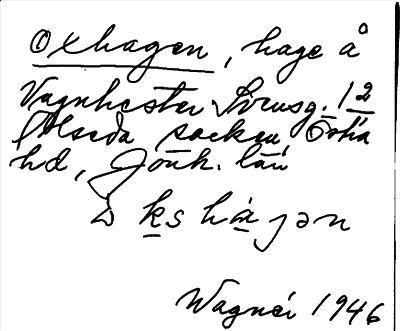 Oxhagen, hage å
Vagnhester Srusg. 1 2
Alseda socken, Östra
hd, Jönk. län
ò ks hà gən
Wagnér 1946